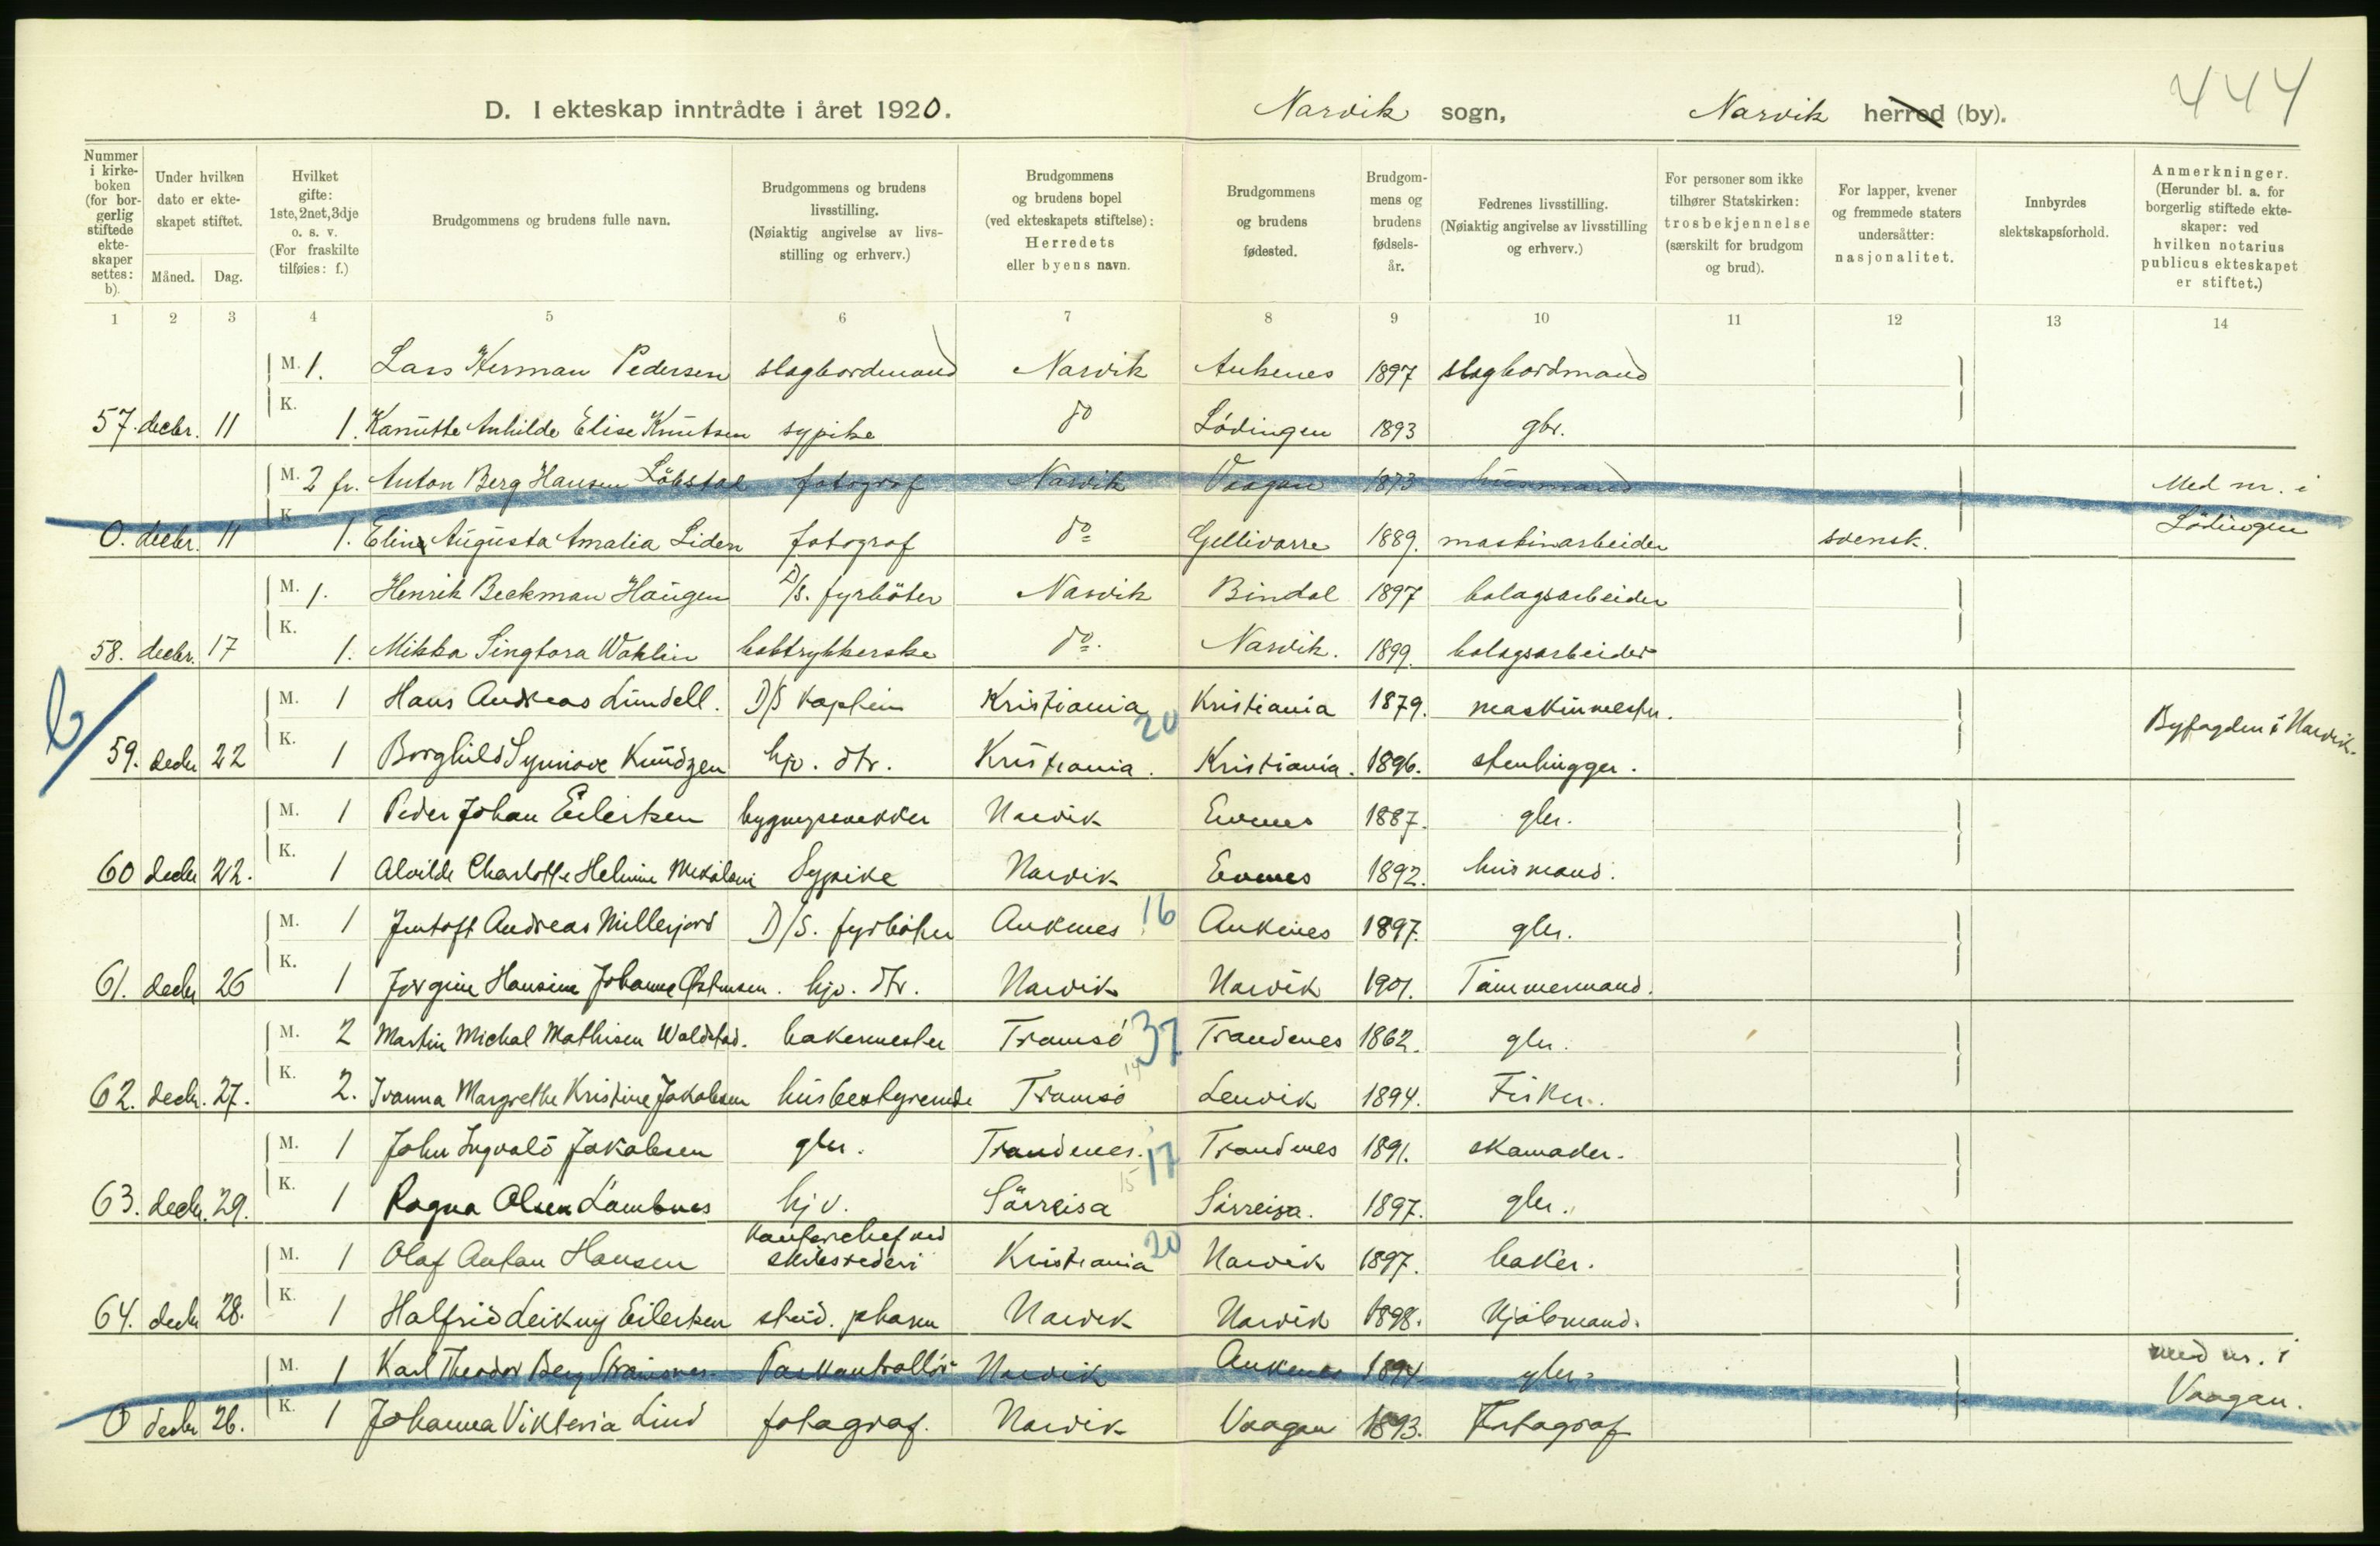 444
D. I ekteskap inntrådte i året 1920. Narvik sogn, Narvik herred (by).
Nummer i kirkeboken (for borgerlig stiftede ekteskaper settes: b). Under hvilken dato er ekteskapet stiftet. Måned. Dag. Hvilket gifte: 1ste, 2net, 3dje o. s. v. (For fraskilte tilføies: f.) Brudgommens og brudens fulle navn. Brudgommens og brudens livsstilling. (Nøiaktig angivelse av livsstilling og erhverv.) Brudgommens og brudens bopel (ved ekteskapets stiftelse): Herredets eller byens navn. Brudgommens og brudens fødested. Brudgommens og brudens fødselsår. Fedrenes livsstilling. (Nøiaktig angivelse av livsstilling og erhverv.) For personer som ikke tilhører Statskirken: trosbekjennelse (særskilt for brudgom og brud). For lapper, kvener og fremmede staters undersåtter: nasjonalitet. Innbyrdes slektskapsforhold. Anmerkninger. (Herunder bl. a. for borgerlig stiftede ekteskaper: ved hvilken notarius publicus ekteskapet er stiftet.)
1 2 3 4 5 6 7 8 9 10 11 12 13 14
M. 1. Lars Herman Pedersen slagbordmand Narvik Ankenes 1897 slagbordmand
57. decbr. 11 K. 1. Kanutte Anhilde Elise Knutsen sypike do Lödingen 1893 gbr.
M. 2 fr. Anton Berg Hansen Löbstal fotograf Narvik Vaagan 1873 husmand Med nr. i
0. decbr. 11 K. 1. Eline Augusta Amalia Liden fotograf do Gellivarre 1889. maskinarbeider svensk. Lödingen
M. 1. Henrik Beckman Haugen D/S. fyrböter Narvik Bindal 1897 bolagsarbeider
58. decbr. 17 K. 1. Mikka Singtora Wahlin boktrykkerske do. Narvik. 1899. bolagsarbeider
b/ M. 1 Hans Andreas Lundell. D/S kaptein Kristiania 20 Kristiania 1879. maskinmester.
59. decbr 22 K. 1 Borghild Synnöve Knudzen hjv. dtr. Kristiania. Kristiania. 1896. stenhugger. Byfogden i Narvik.
M. 1 Peder Johan Eilertsen bygningssnekker Narvik Evenes 1887. gbr.
60 decbr 22. K. 1 Alvilde Charlotte Helmine Mikalsen Sypike Narvik Evenes 1892. husmand.
M. 1 Jentoft Andreas Millerjord D/S. fyrböter Ankenes 16 Ankenes 1897. gbr.
61. decbr 26 K. 1 Jörgine Hansine Johanne Östensen. hjv. dtr. Narvik Narvik 1901. Tømmermand.
M. 2 Martin Michal Mathisen Waldstad. bakermester Tromsö 37 Trondenes 1862. gbr.
62. decbr. 27. K. 2. Ivanna Margrethe Kristine Jakobsen husbestyrende Tromsö Lenvik 1894. Fisker.
M. 1 John Ingvald Jakobsen gbr. Trondenes. 17 Trondenes 1891. skomaker.
63. decbr. 29. K. 1 Ragna Olsen Lambnes hjv. Sörreisa 15 Sörreisa. 1897. gbr.
M. 1 Olaf Anton Hansen kontorchef ved skibsrederi Kristiania 20 Narvik 1897. baker.
64. decbr 28. K. 1 Halfrid Leikny Eilertsen stud. pharm Narvik Narvik 1898. Kjöbmand.
M. 1 Karl Theodor Berg Straumsnes. Paskontrollör Narvik Ankenes 1894 gbr. med nr. i
0 decbr 26. K. 1 Johanna Viktoria Lind fotograf. Narvik Vaagan 1893. Fotograf Vaagan.